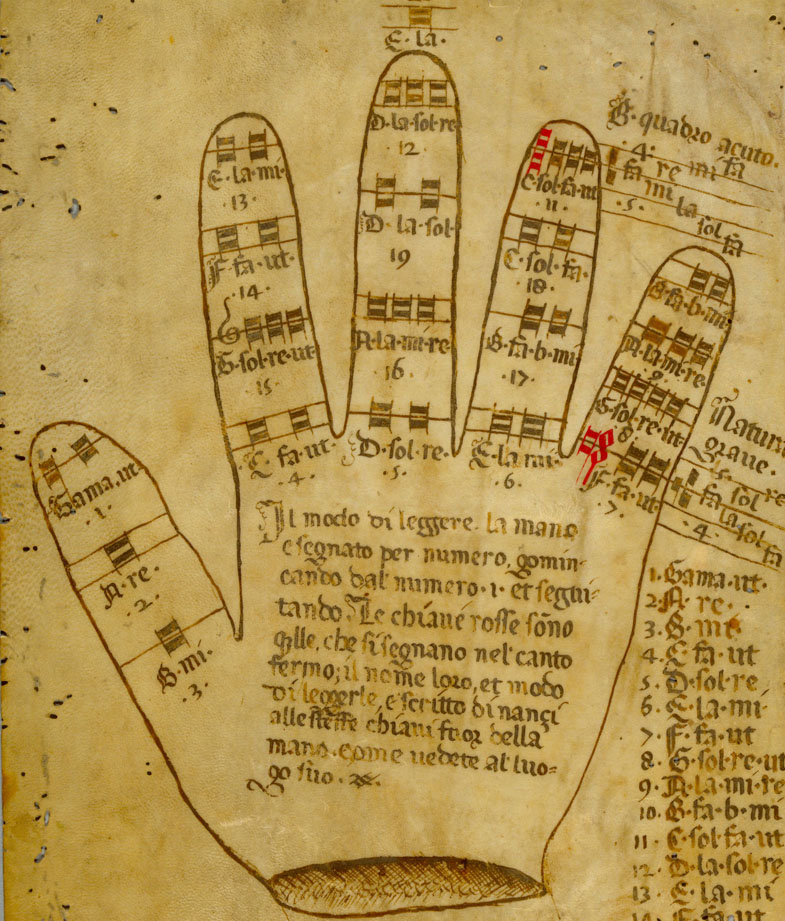 E·la·
D·la·sol·re
12
E·la·mi·
13·
D·la·sol·
19
F·fa·ut·
·14·
A·la·mi·re
·16
G·sol·re·ut·
·15·
C·fa·ut·
·4·
D·sol·re·
·5·
B·quadro acuto·
·4· re mi fa
fa mi la sol fa
·5·
C·sol·fa·ut
·11·
C·sol·fa·
·18·
B·fa·b·mi
·17·
E·la·mi·
·6·
B·fa·b·mi
A·la·mi·re·
·9·
G·sol·re·ut
·8·
F·fa·ut·
·7·
Natura
grave·
·5· re
fa sol
la sol fa
·4·
Gama·ut
·1·
A·re·
·2·
B·mi·
·3·
Il modo di leggere la mano
e segnato per numero, gomin-
cando dal numero·1·et segui-
tando. Le chiaue rosse sono
qlle, che si segnano nel canto
fermo; il nome loro, et modo
di leggerle, e scritto dinançi
alle stesse chiaui fuor della
mano·come uedete al luo=
go suo·
1·Gama·ut·
2·A·re·
3·B·mi·
4·C·fa·ut
5·D·sol·re
6·E·la·mi·
7·F·fa·ut
8·G·sol·re·ut
9·A·la·mi·re
10·B·fa·b·mi
11·C·sol·fa·ut
12·D·la·sol·re
13·E·la·mi
14·F·fa·ut